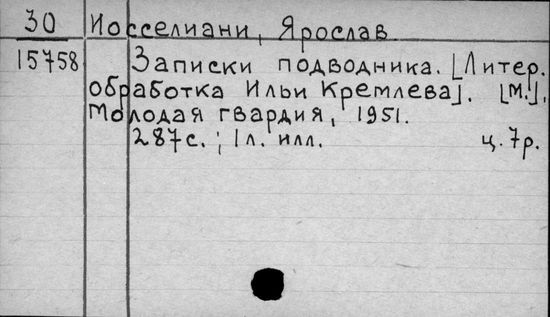 30 Иосселиани, Ярослав
15758 Записки подводника. [Литер.
обработка Ильи Кремлева]. [М.],
Молодая гвардия, 1951.
287с.; 1л. илл. ц. 7р.